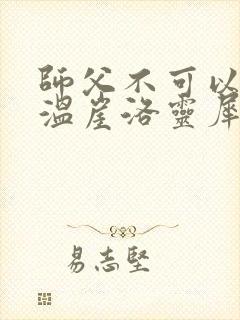 師父不可以
溫崖洛靈犀
易志堅